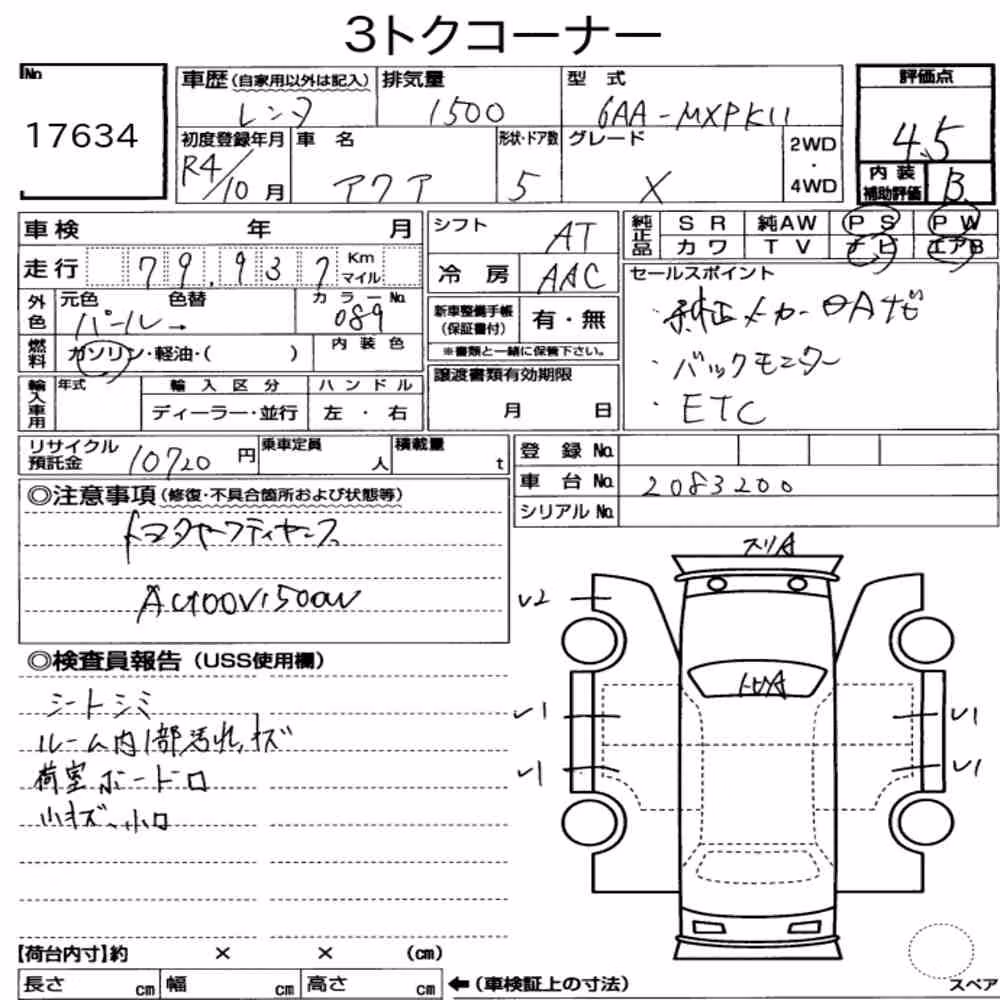 3トクコーナー
No
17634
車歴(自家用以外は記入) 排気量 型 式 評価点
レンタ 1500 6AA-MXPK11 4.5
初度登録年月 車 名 形状・ドア数 グレード 2WD・4WD
R4/10月 アクア 5 X
内装補助評価 B
車検 年 月 シフト AT 純正品 S R 純AW P S P W
カワ T V ナビ エアB
走行 79,937 Km マイル 冷 房 AAC
セールスポイント
外色 元色 色替 カラーNo.
パール→ 089
新車整備手帳(保証書付) 有・無
※書類と一緒に保管下さい。
・純正メーカーナビ
・バックモニター
・ETC
燃料 ガソリン・軽油・( ) 内 装 色
輸入車用 年式 輸 入 区 分 ハ ン ド ル
ディーラー・並行 左 ・ 右
譲渡書類有効期限
月 日
リサイクル預託金 10720 円 乗車定員 人 積載量 t
登 録 No.
車 台 No. 2083200
シリアル No.
◎注意事項(修復・不具合箇所および状態等)
トヨタセーフティセンス
AC100V1500W
スリA
◎検査員報告(USS使用欄)
シートシミ
ルーム内1部汚れ、キズ
荷室ボード口
小キズ、小凹
v2
トビA
v1
v1
v1
v1
【荷台内寸】約 × × (cm)
長さ cm 幅 cm 高さ cm ←(車検証上の寸法)
スペア